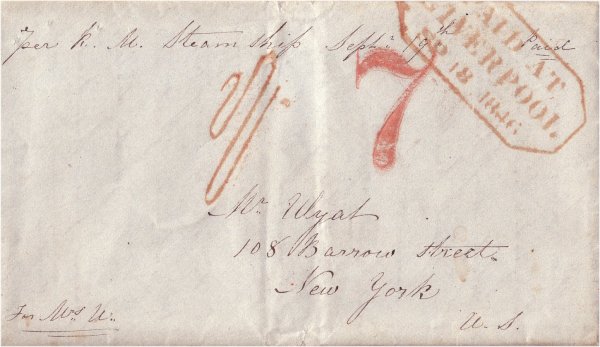 per R. M. Steam Ship Sepr. 19th Paid
PAID AT
LIVERPOOL
SP 18 1846
7
Mr. Wyat
108 Barrow Street
New York
U. S.
For Mrs W.